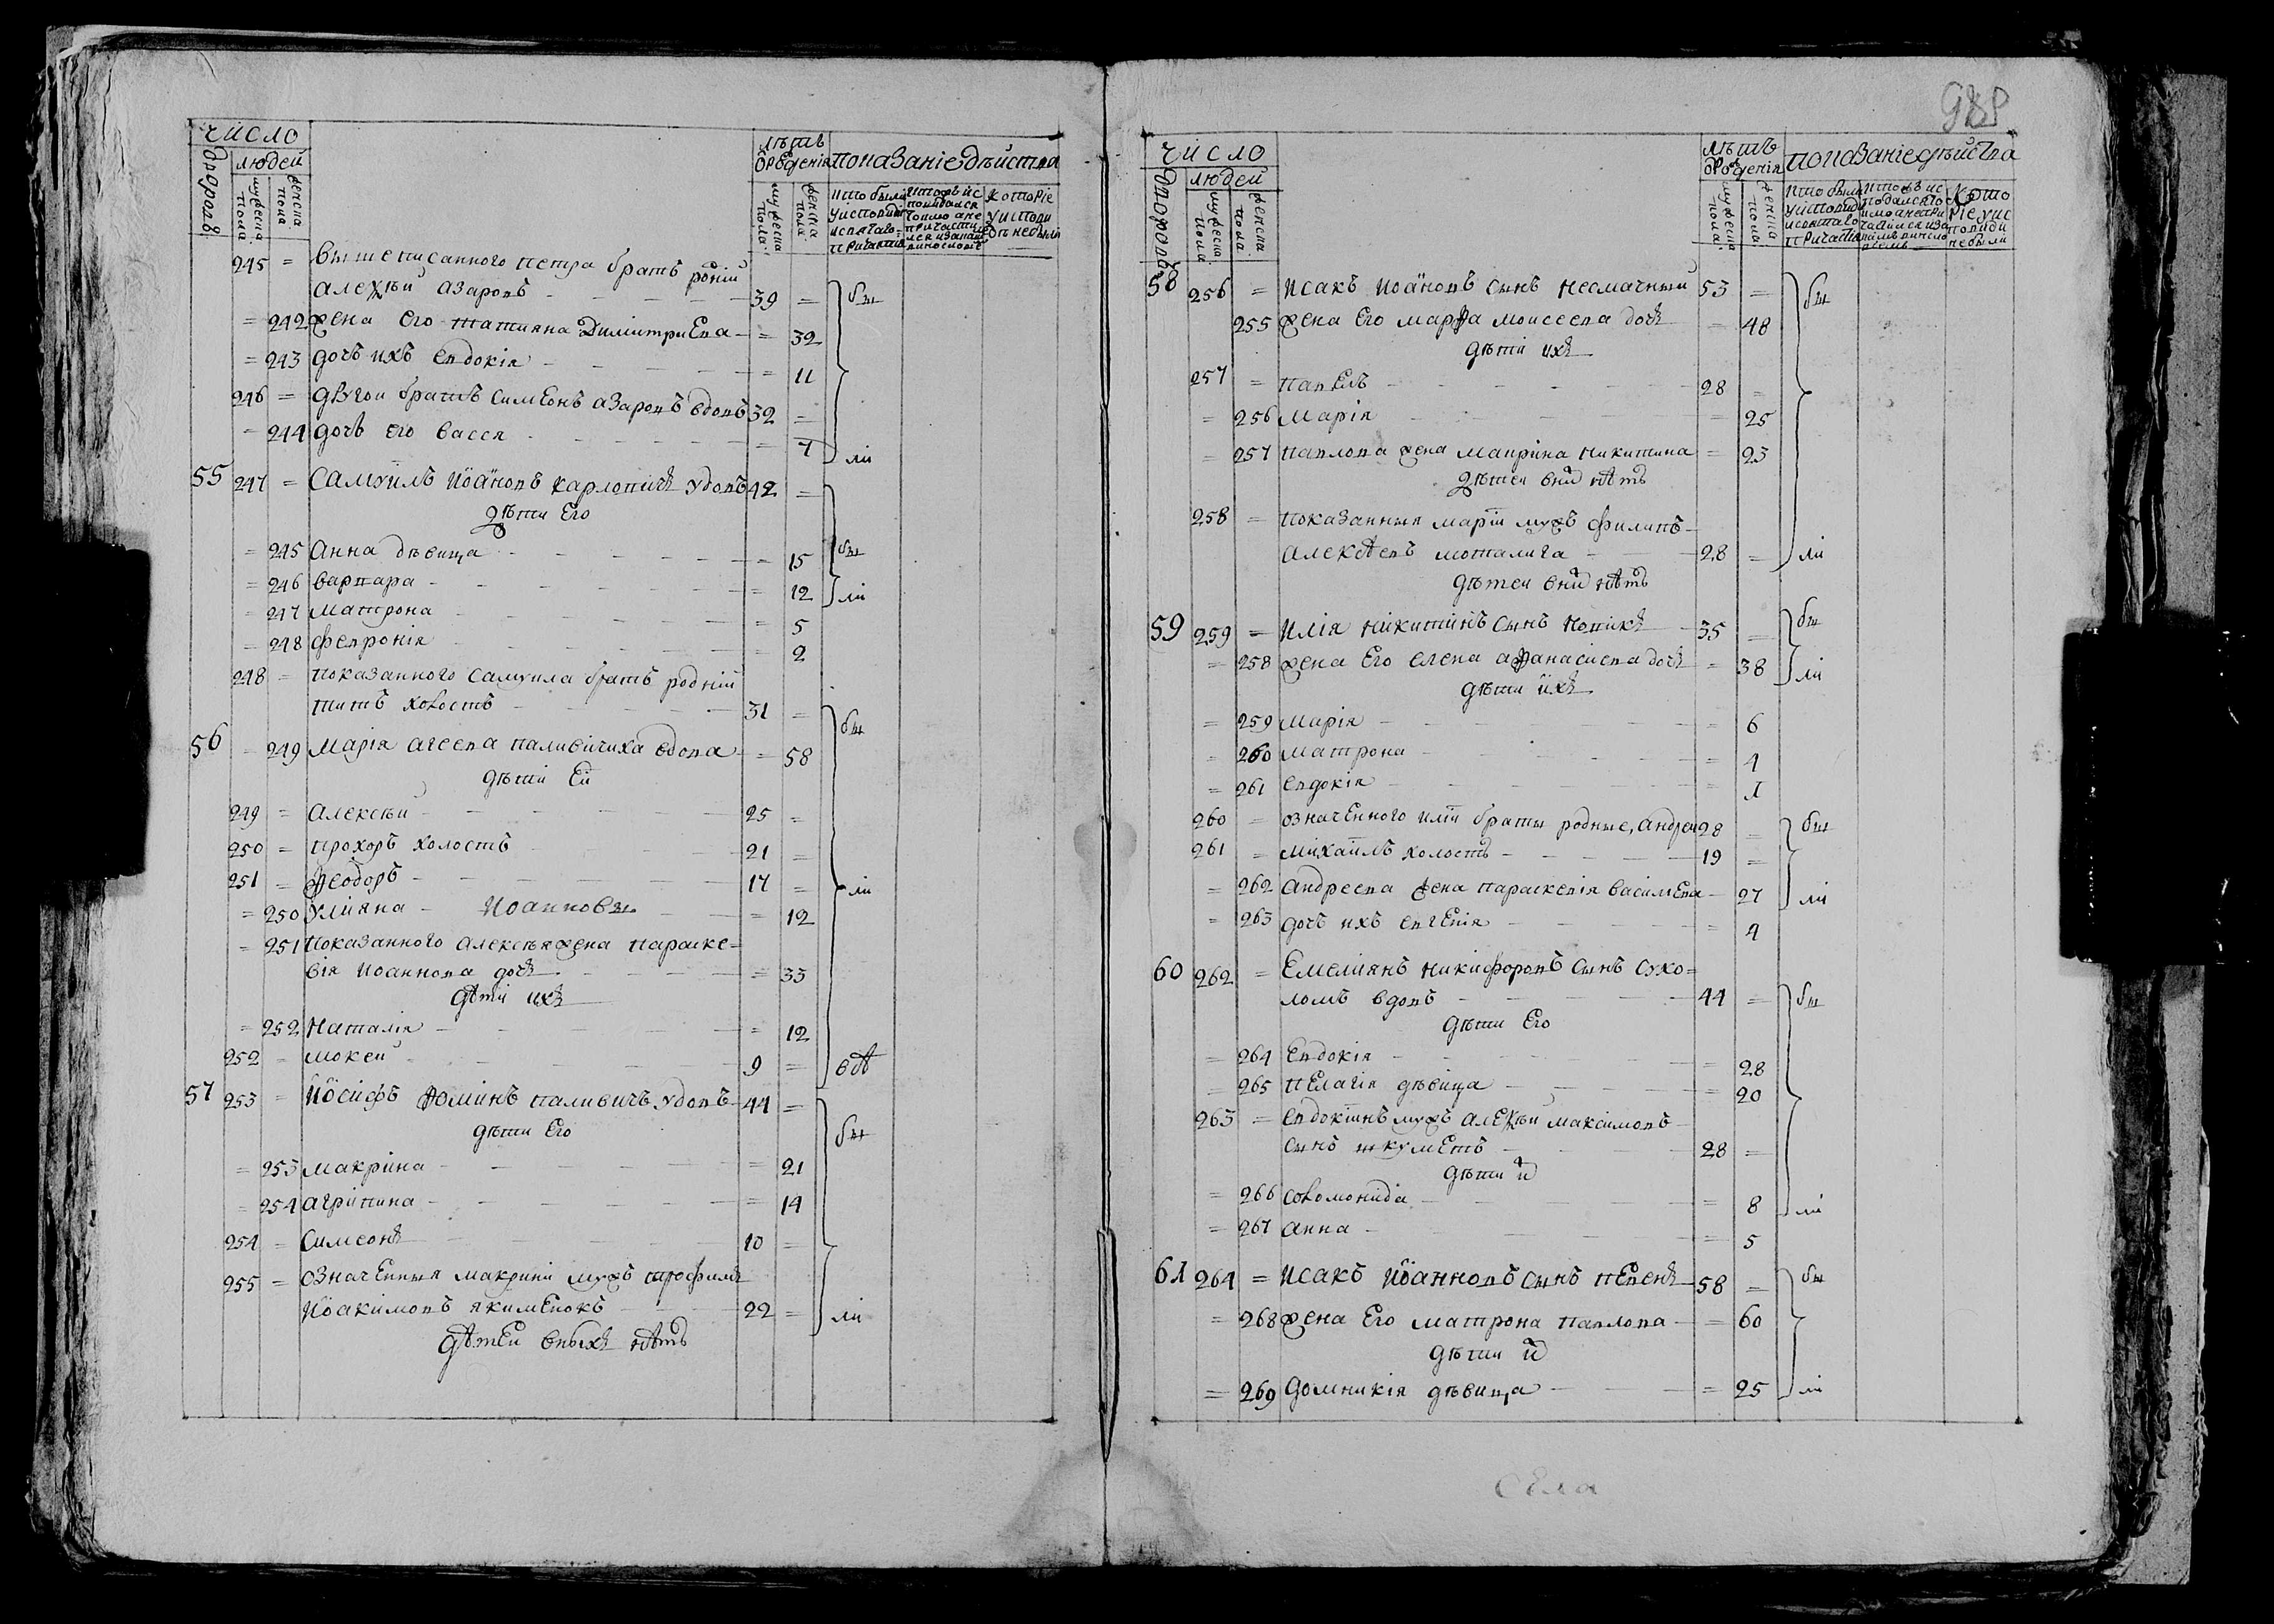 число
лѣтъ
дворовъ
людей
ѿ рожденія
показаніе дѣйства
мужеска пола
женска пола
мужеска пола
женска пола
кто были
у исповѣди
и святаго
причастія
которіе
у исповѣди
не были
245 = вышеписанного петра братъ родній
алеѯѣй азаровъ 39 = бы
= 242 жена его татияна Димитриева = 32
= 243 дочъ ихъ евдокія = 11
246 = другои братъ симеонъ азаровъ вдовъ 32 =
= 244 дочъ его васся = 7 ли
55 247 = Самуилъ иоановъ карловичъ удовъ 42 =
дѣти Его
= 245 Анна дѣвица = 15 бы
= 246 варвара = 12 ли
= 247 Матрона = 5
= 248 февронія = 2
248 = показанного самуила братъ родній
титъ холостъ 31 = бы
56 = 249 Марія агеева паливичиха вдова = 58
дѣти Ей
249 = алексѣй 25 =
250 = прохоръ холостъ 21 =
251 = ѳеодоръ 17 = ли
= 250 улияна Иоанновы = 12
= 251 показанного алексѣя жена параске=
вія иоаннова дочъ = 33
дѣти ихъ
= 252 Наталія = 12
252 = мокей 9 = вѣ
57 253 = Иосифъ ѳоминъ паливичъ удовъ 44 =
дѣти Его бы
= 253 макрина = 21
= 254 агрипина = 14
254 = Симеонъ 10 =
255 = означенныя макрини мужъ трофимъ
иоакимовъ якименокъ 22 = ли
дѣтей вныхъ нѣтъ
число
лѣтъ
дворовъ
людей
ѿ рожденія
показаніе дѣйства
мужеска пола
женска пола
мужеска пола
женска пола
кто были
у исповѣди
и святаго
причастія
кото
ріе у ис
повиди
не были
58 256 = исакъ иоановъ сынъ несмачный 53 = бы
255 жена Его марѳа моисеева дочъ = 48
дѣти ихъ
257 = павелъ 28 =
= 256 Марія = 25
= 257 павлова жена маврина никитина = 23
дѣтей вних нѣтъ
258 = показанныя маріи мужъ филипъ
алексѣевъ моталига 28 = ли
дѣтей вних нѣтъ
59 259 = илія никитинъ сынъ новикъ 35 = бы
= 258 жена Его елена аѳанасиева дочъ = 38 ли
дѣти ихъ
= 259 марія = 6
= 260 матрона = 4
= 261 евдокія = 1
260 = означенного иліи браты родные, андрей 28 = бы
261 = михаилъ холостъ 19 =
= 262 андреева жена параскевія василиева = 27 ли
= 263 дочъ ихъ евгенія = 4
60 262 = Емелиянъ никифоровъ сынъ сухо=
ломъ вдовъ 44 = бы
дѣти Его
= 264 евдокія = 28
= 265 пелагія дѣвица = 20
263 = евдокіинъ мужъ алеѯѣй максимовъ
сынъ шкуметъ 28 =
дѣти их
= 266 соломонида = 8 ли
= 267 анна = 5
61 264 = исакъ иоанновъ сынъ певенъ 58 = бы
= 268 жена Его матрона павлова = 60
дѣти их
= 269 домникія дѣвица = 25 ли
Села